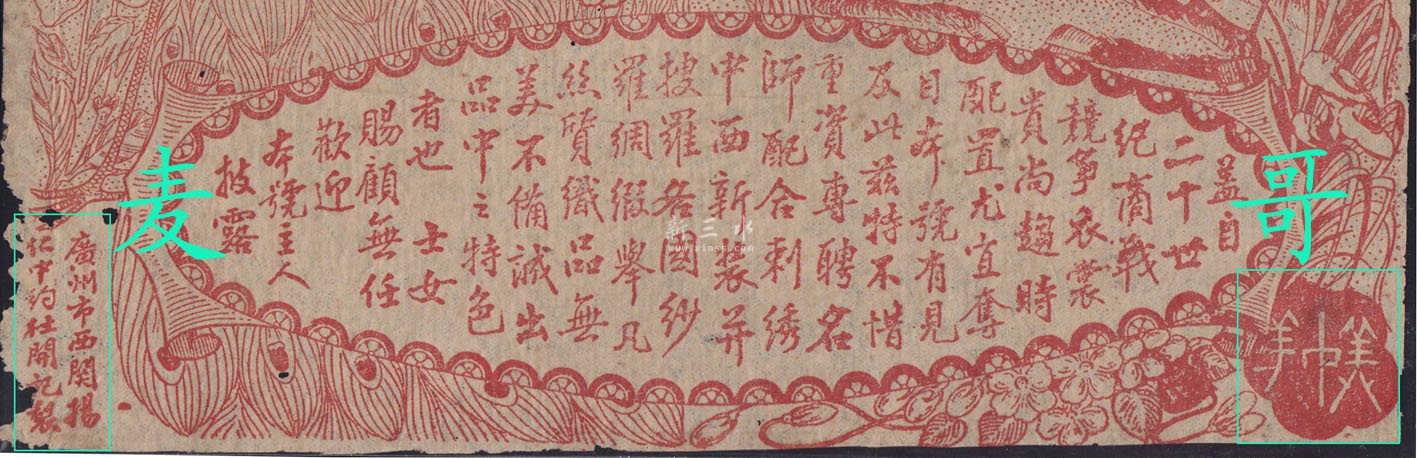 哥
蓋自
二十世
紀商戰
競爭衣裳
貴尚趨時
配置尤宜奪
目本號有見
及此茲特不惜
重資專聘名
師配合刺綉
中西新裝并
搜羅各國紗
羅綢緞舉凡
絲質織品無
美不備誠出
品中之特色
者也 士女
賜顧無任
歡迎
本號主人
披露
麦
廣州市西関揚
仁中約杜開記製
新三水
www.xinss.com